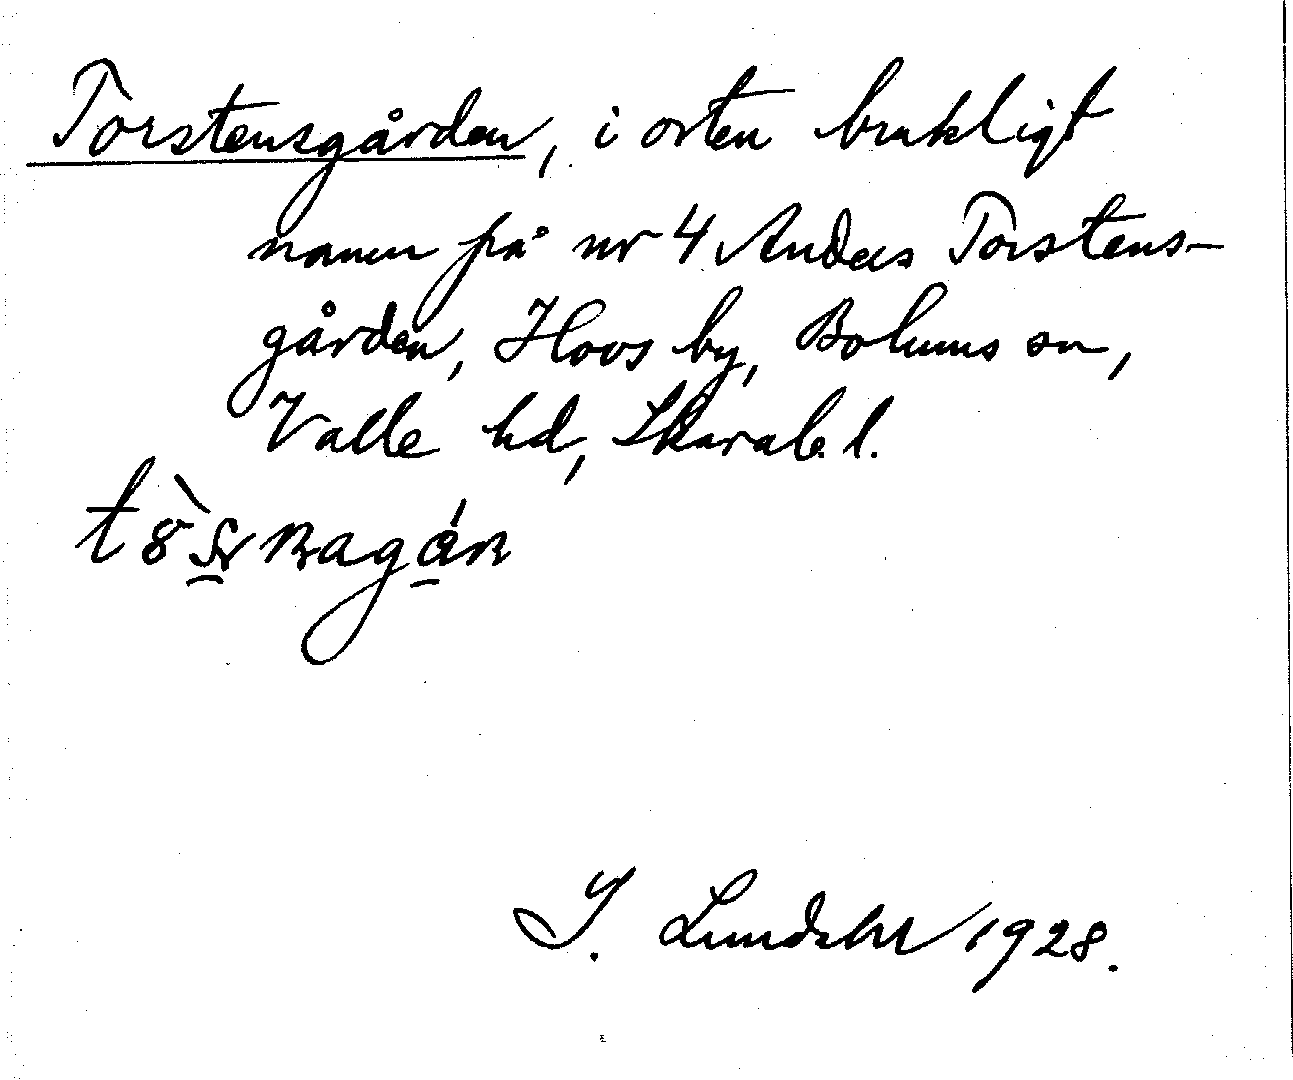 Torstensgården, i orten brukligt
namn på nr 4 Anders Torstens-
gården, Hovs by, Bolums sn,
Valle hd, Skarab. l.
1928.